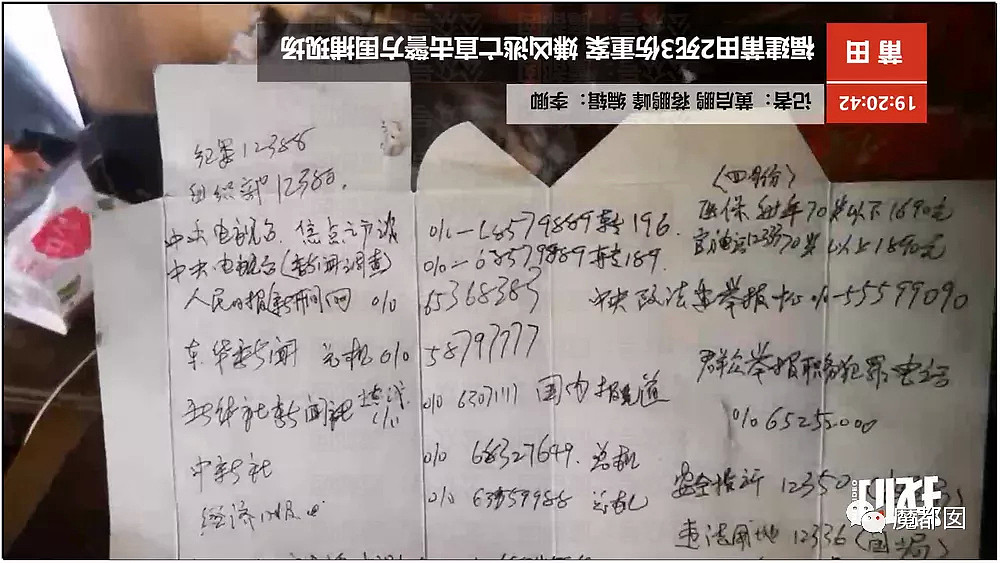 福建莆田2死3伤重案 嫌凶逃亡直击警方围捕现场
莆田
记者：黄启鹏 蒋鹏峰 编辑：李卿
19:20:42
纪委12388
组织部12380.
中央电视台.焦点访谈 010-68579889转196.
中央电视台(新闻调查) 010-68579889转189.
人民日报新闻网 010 65368383
新闻 总机010 58797777
新华社新闻 010 63071111 国内报道
中新社 010 68327649. 总机
经济日报 010 总机
(四月份)
医保 70岁以下1690元
70岁以上1890元
中央政法委举报中心010-55599090
群众举报职务犯罪电话
010 65252000
安全 12350
违法用地 12336(国
魔都囡